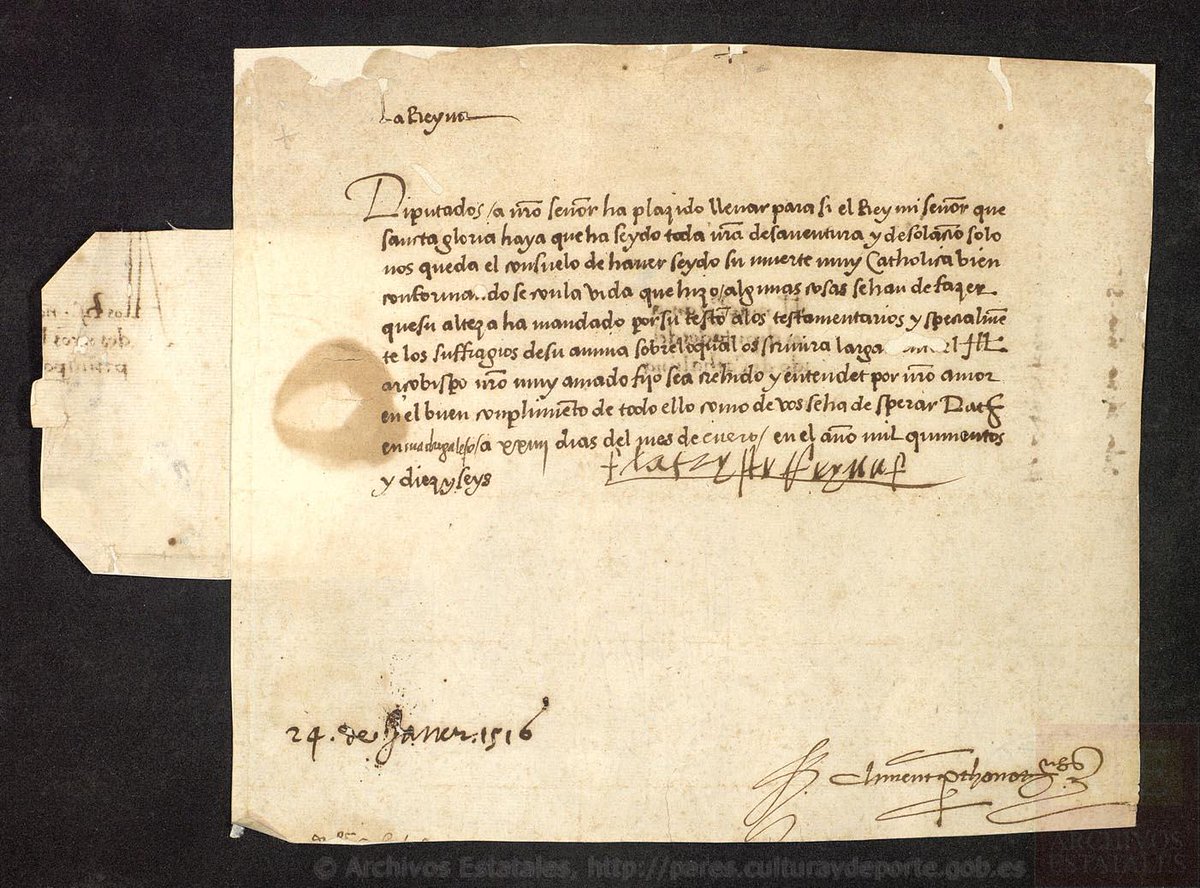 La Reyna
Diputados / a nr̃o señor ha plazido llevar para si el Rey mi señor que
sancta gloria haya que ha seydo toda nr̃a desaventura y desolacio solo
nos queda el consuelo de haver seydo su muerte muy Catholica bien
conforma..do se con la vida que hizo / algunas cosas se han de fazer
que su alteza ha mandado por su testo a los testamentarios y specialme
te los suffragios de su anima sobre lo qual os scrivira larga el Ill
arcobispo nr̃o muy amado fijo sea crehido y entendet por nr̃o amor
en el buen conplimieto de todo ello como de vos se ha de sperar Dat
en madrigalejo / a xxiiij dias del mes de enero / en el año mil quinientos
y diez y seys
la tryste Reyna
24. de Janer. 1516
Climent prothonot
© Archivos Estatales, http://pares.culturaydeporte.gob.es
ARCHIVOS
ESTATALES